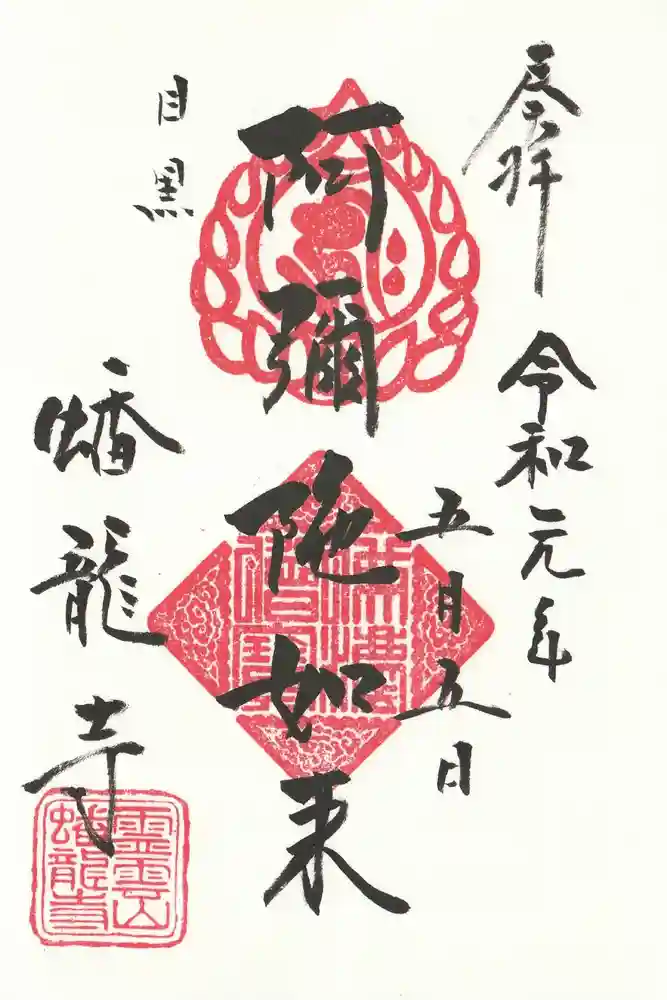 奉拝
令和元年
五月五日
阿彌陀如来
目黒
蟠龍寺
霊雲山
蟠龍寺